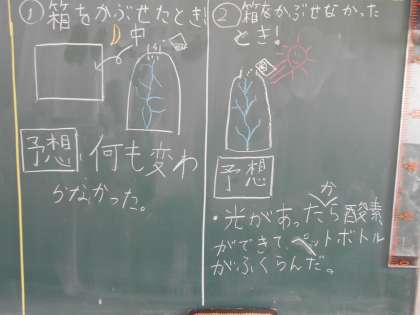 ①箱をかぶせたとき!
中
予想
何も変わ
らなかった。
②箱をかぶせなかった
とき!
予想
か
・光があったら酸素
ができて、ペットボトル
がふくらんだ。